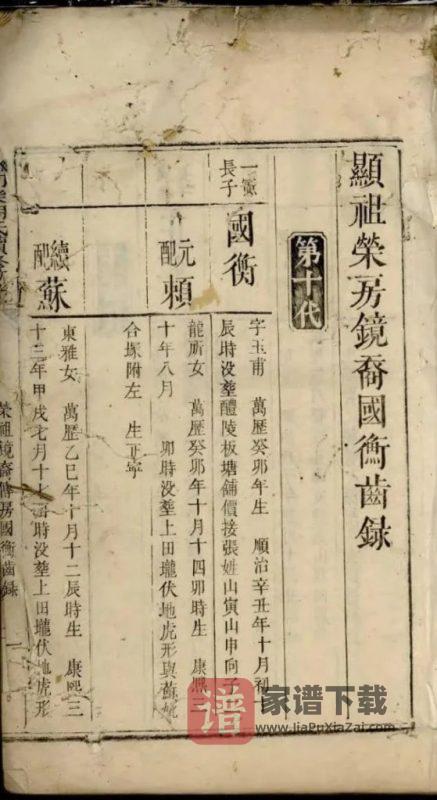 顯祖榮房鏡裔國衡齒録
第十代
長子
國衡
字玉甫 萬歷癸卯年生 順治辛丑年十月初
辰時没塟醴陵板塘鋪價接張姓山寅山申向子一
元配
賴
龍所女 萬歷癸卯年十月十四卯時生 康熙三
十年八月 卯時没塟上田壠伏地虎形與蘇
合塚附左 生
續配
蘇
東雅女 萬歷乙巳年十月十二辰時生 康熙三
十三年甲戌七月十 時没塟上田壠伏地虎形
榮祖鏡裔 房國衡齒録
一
譜 家谱下载
www.JiaPuXiaZai.com